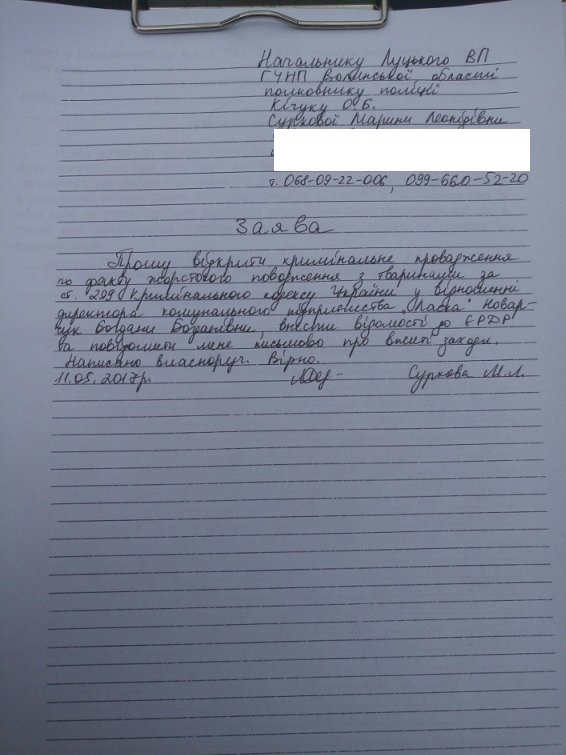 Начальнику Луцького ВП
ГУНП Волинської області
полковнику поліції
Кігуку О.Б.
Суркової Марини Леонідівни
т. 068-09-22-006, 099-660-52-20
Заява
Прошу відкрити кримінальне провадження
по факту жорстокого поводження з тваринами за
ст. 299 Кримінального кодексу України у відношенні
директора комунального підприємства „Ласка" Новар-
чук Богдани Богданівни, внести відомості до ЄРДР
та повідомити мене письмово про вжиті заходи.
Написано власноруч. Вірно.
11.05.2017р. Суркова М.Л.